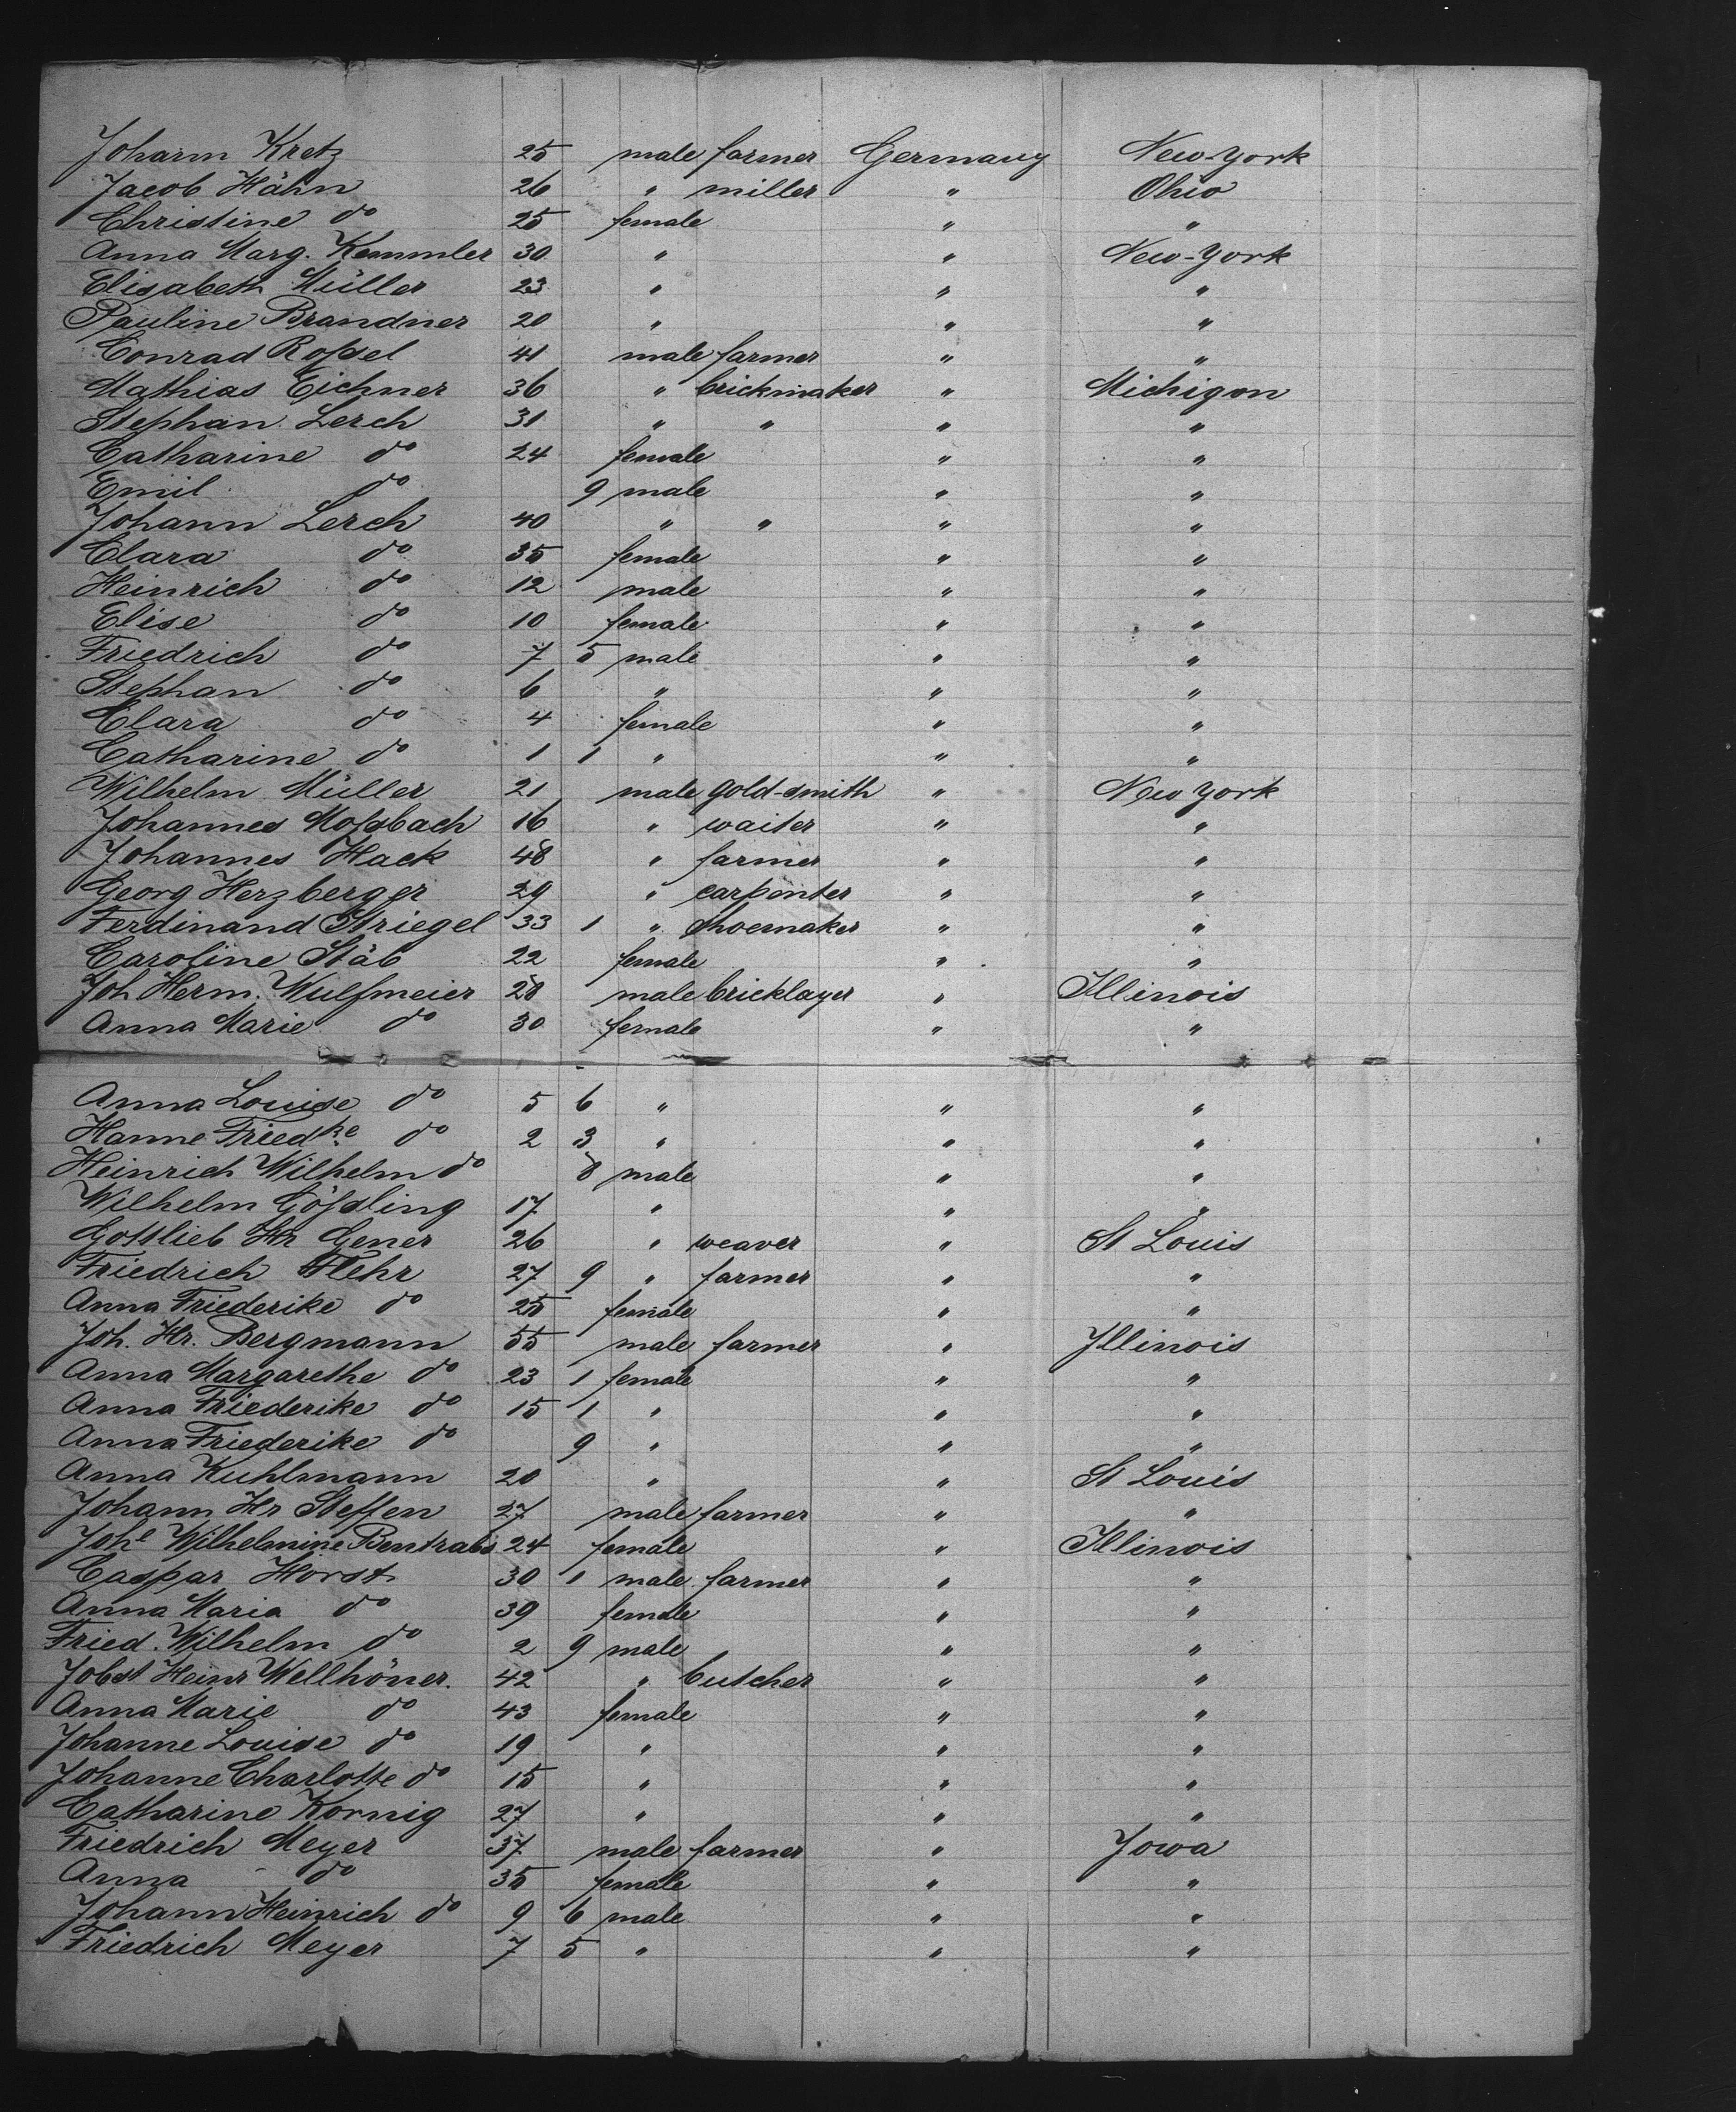 Johann Kretz 25 male farmer Germany New-York
Jacob Hähn 26 " miller " Ohio
Christine do 25 female " "
Anna Marg. Kemmler 30 " " New-York
Elisabeth Müller 23 " " "
Pauline Brandner 20 " " "
Conrad Roſsel 41 male farmer " "
Mathias Eichner 36 " brickmaker " Michigan
Stephan Lerch 31 " " " "
Catharine do 24 female " "
Emil do 9 male " "
Johann Lerch 40 " " " "
Clara do 35 female " "
Heinrich do 12 male " "
Elise do 10 female " "
Friedrich do 7 5 male " "
Stephan do 6 " " "
Clara do 4 female " "
Catharine do 1 1 " " "
Wilhelm Müller 21 male gold-smith " New York
Johannes Moſsbach 16 " waiter " "
Johannes Hack 48 " farmer " "
Georg Herzberger 29 " carpenter " "
Ferdinand Striegel 33 1 " shoemaker " "
Caroline Stäb 22 female " "
Joh Herm. Wulfmeier 28 male bricklayer " Illinois
Anna Marie do 30 female " "
Anna Louise do 5 6 " " "
Hanne Friedke do 2 3 " " "
Heinrich Wilhelm do 8 male " "
Wilhelm Göſsling 17 " " "
Gottlieb Hr Gener 26 " weaver " St Louis
Friedrich Flehr 27 9 " farmer " "
Anna Friederike do 25 female " "
Joh. Hr. Bergmann 55 male farmer " Illinois
Anna Margarethe do 23 1 female " "
Anna Friederike do 15 1 " " "
Anna Friederike do 9 " " "
Anna Kuhlmann 20 " " St Louis
Johann Hr Steffen 27 male farmer " "
Johe Wilhelmine 24 female " Illinois
Caspar Horst 30 1 male farmer " "
Anna Maria do 39 female " "
Fried. Wilhelm do 2 9 male " "
Jobst Heinr Wellhöner. 42 " butcher " "
Anna Marie do 43 female " "
Johanne Louise do 19 " " "
Johanne Charlotte do 15 " " "
Catharine Kornig 27 " " "
Friedrich Meyer 37 male farmer " Iowa
Anna do 35 female " "
Johann Heinrich do 9 6 male " "
Friedrich Meyer 7 5 " " "